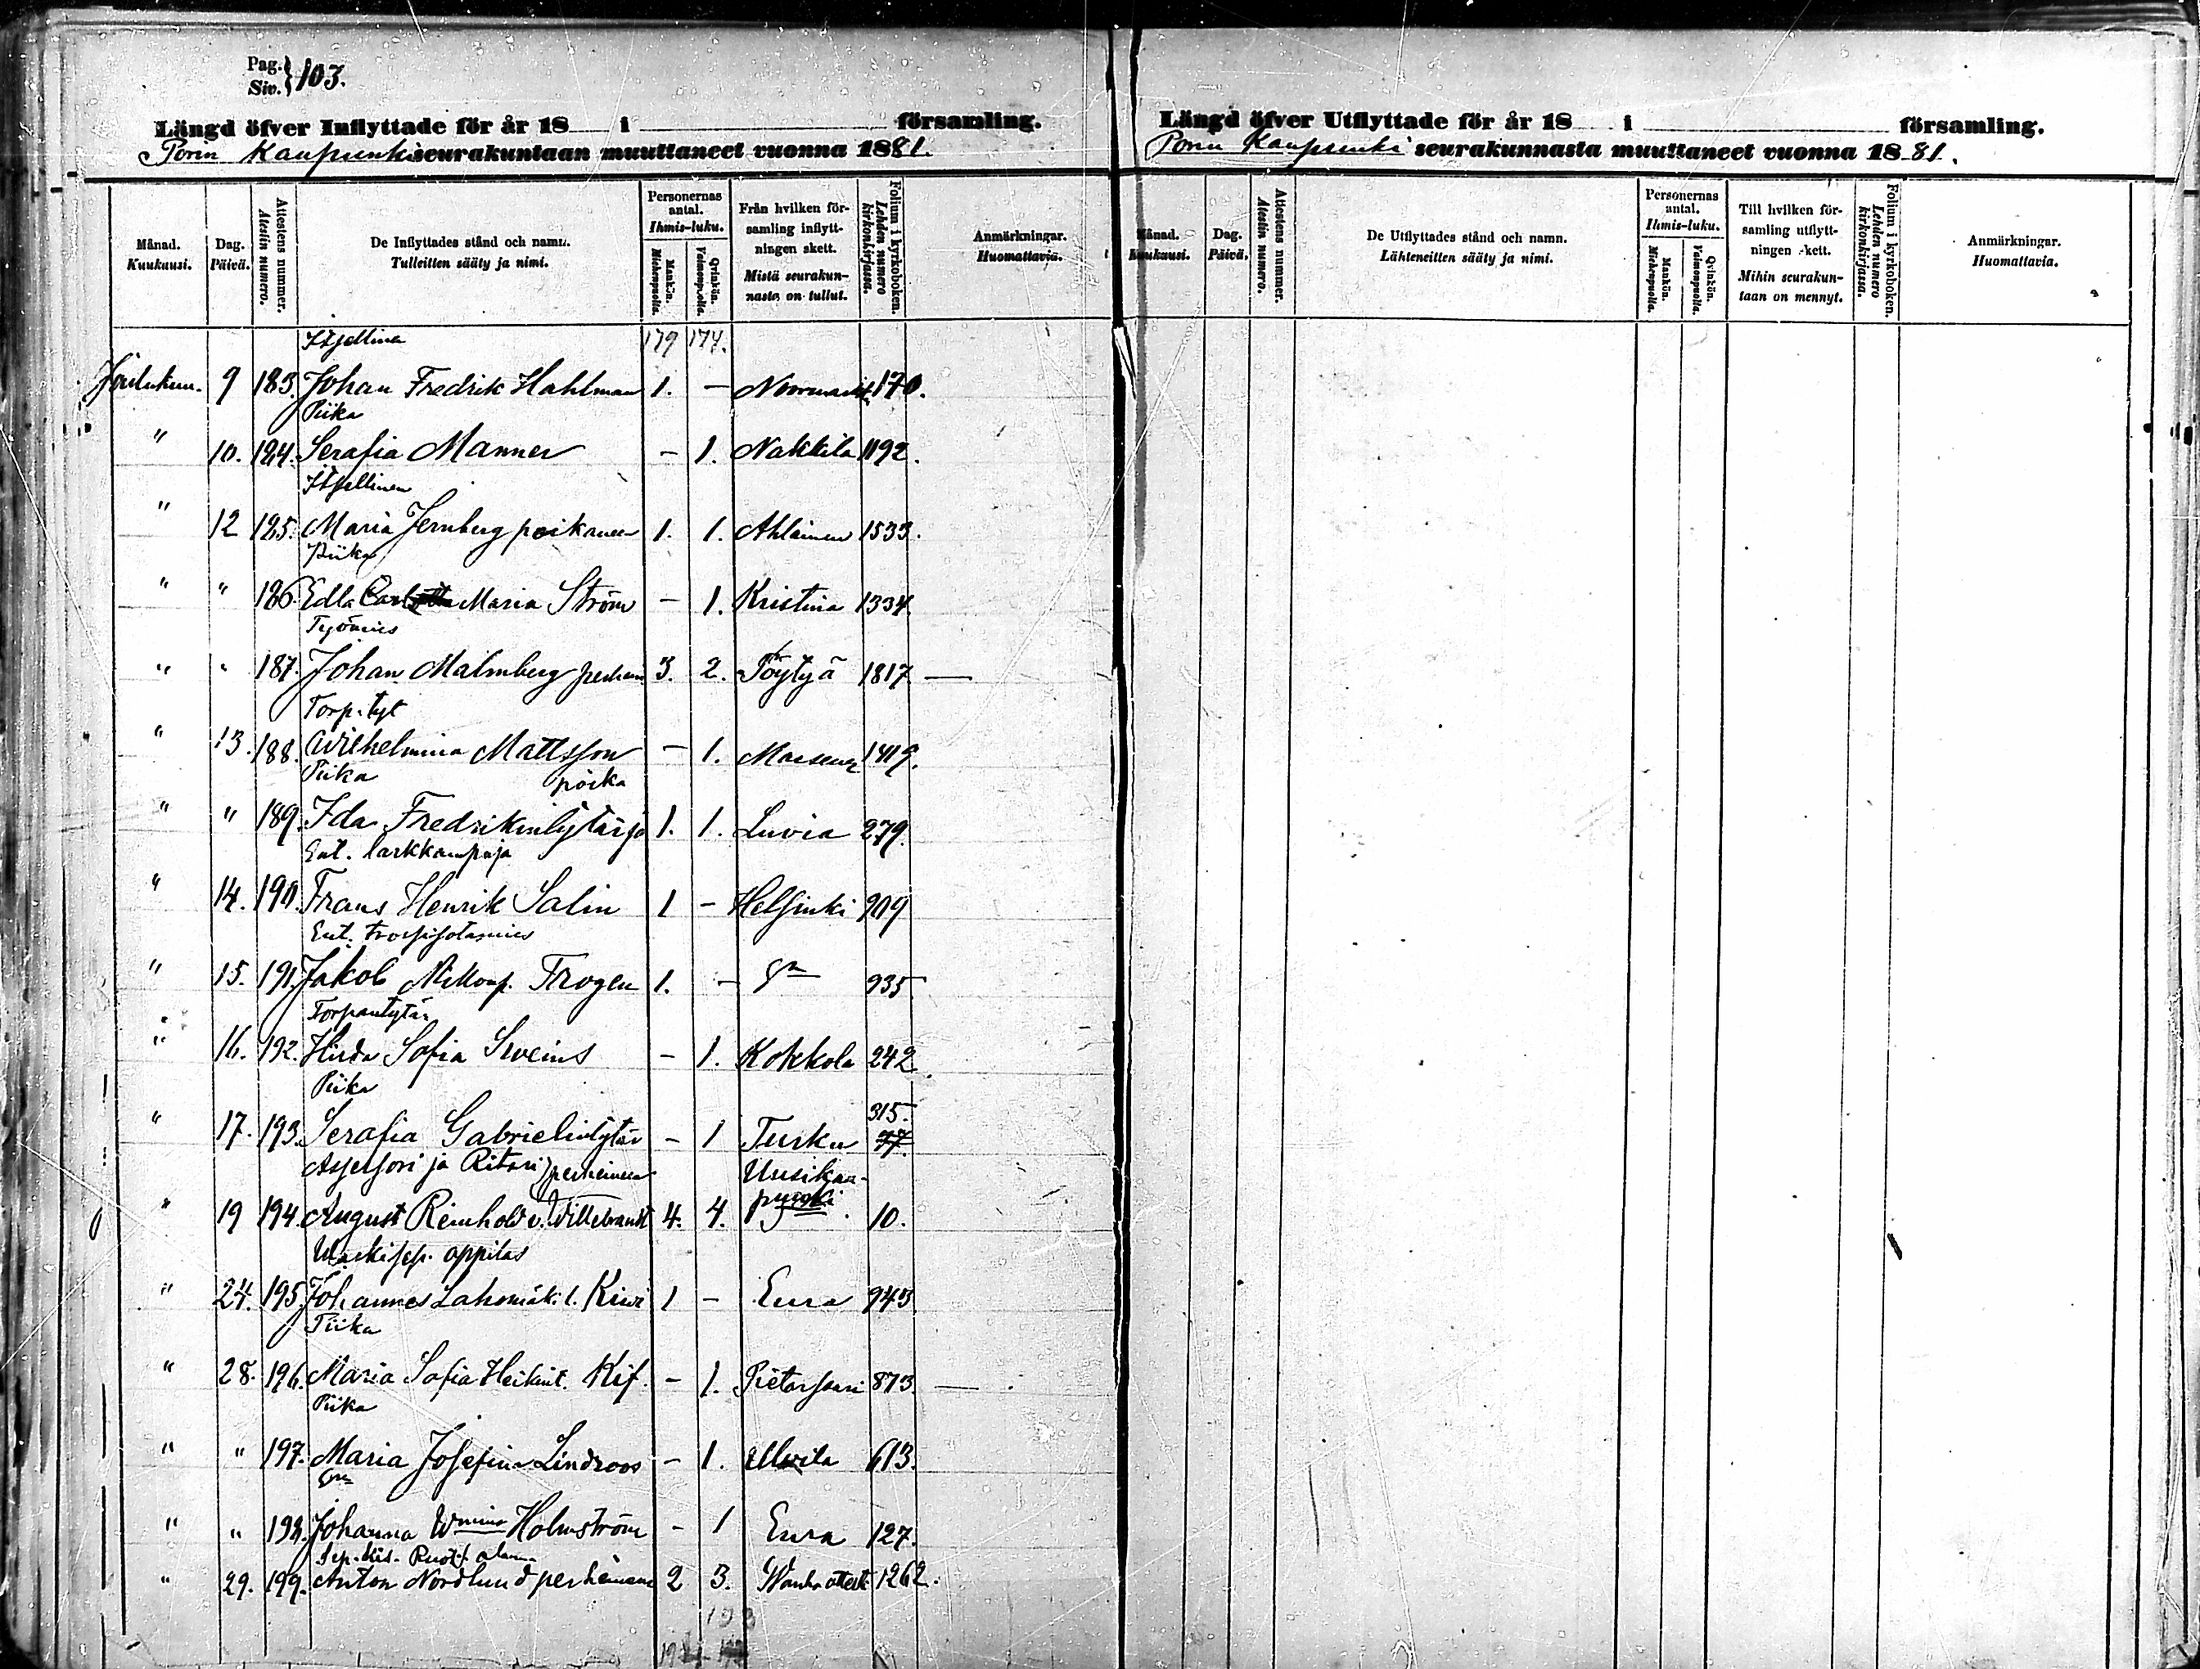 Pag. Siv. } 103.
Längd öfver Inflyttade för år 18 i församling.
Porin Kaupunki seurakuntaan muuttaneet vuonna 1881.
Månad. Kuukausi.
Dag. Päivä.
Attestens nummer. Atestin numero.
De Inflyttades stånd och namn. Tulleitten sääty ja nimi.
Personernas antal. Ihmis-luku.
Mankön. Miehenpuolia.
Qvinkön. Vaimonpuolia.
Från hvilken församling inflyttningen skett. Mistä seurakunnasta on tullut.
Folium i kyrkoboken. Lehden numero kirkonkirjassa.
Anmärkningar. Huomattavia.
Itsellinen 179 174.
9 183. Johan Fredrik Hahlman 1. — 170.
Piika
" 10. 184. Serafia Manner — 1. Nakkila 1192.
Itsellinen
" 12 185. Maria Jernberg poikaneen 1. 1. Ahlainen 1533.
Piika
" " 186. Edla Maria Ström — 1. Kristina 1334.
Työmies
" " 187. Johan Malmberg 3. 2. Pöytyä 1817 —
Torp. tyt
" 13. 188. Wilhelmina Mattsson — 1. 1419.
Piika poika
" " 189. Ida Fredrikintytär ja 1. 1. Luvia 279.
Ent. 
" 14. 190. Frans Henrik Salin 1 — Helsinki 909
Ent.
" 15. 191. Jakob Trogen 1. — 935
Torpantytär
" 16. 192. Sofia — 1. Kokkola 242.
Piika
315.
" 17. 193. Serafia Gabrielintytär — 1 Turku 77.
Assessori ja Ritari perheineen Uusikaupunki
" 19 194. August Reinhold v. Willebrandt 4. 4. 10.
Waskisep. oppilas
" 24. 195. Johannes Lahomäki l. Kiwi 1 — Eura 943
Piika
" 28. 196. Maria Sofia Heikint. — 1. Pietarsaari 873. —
Piika
" " 197. Maria Josefina Lindroos — 1. Ulwila 613.
" " 198. Johanna Wmina Holmström — 1 Eura 127.
" 29. 199. Anton Nordlund perheineen 2 3. Wanha attesti 1262.
Längd öfver Utflyttade för år 18 i församling.
Porin Kaupunki seurakunnasta muuttaneet vuonna 1881.
Månad. Kuukausi.
Dag. Päivä.
Attestens nummer. Atestin numero.
De Utflyttades stånd och namn. Lähteneitten sääty ja nimi.
Personernas antal. Ihmis-luku.
Mankön. Miehenpuolia.
Qvinkön. Vaimonpuolia.
Till hvilken församling utflyttningen skett. Mihin seurakuntaan on mennyt.
Folium i kyrkoboken. Lehden numero kirkonkirjassa.
Anmärkningar. Huomattavia.